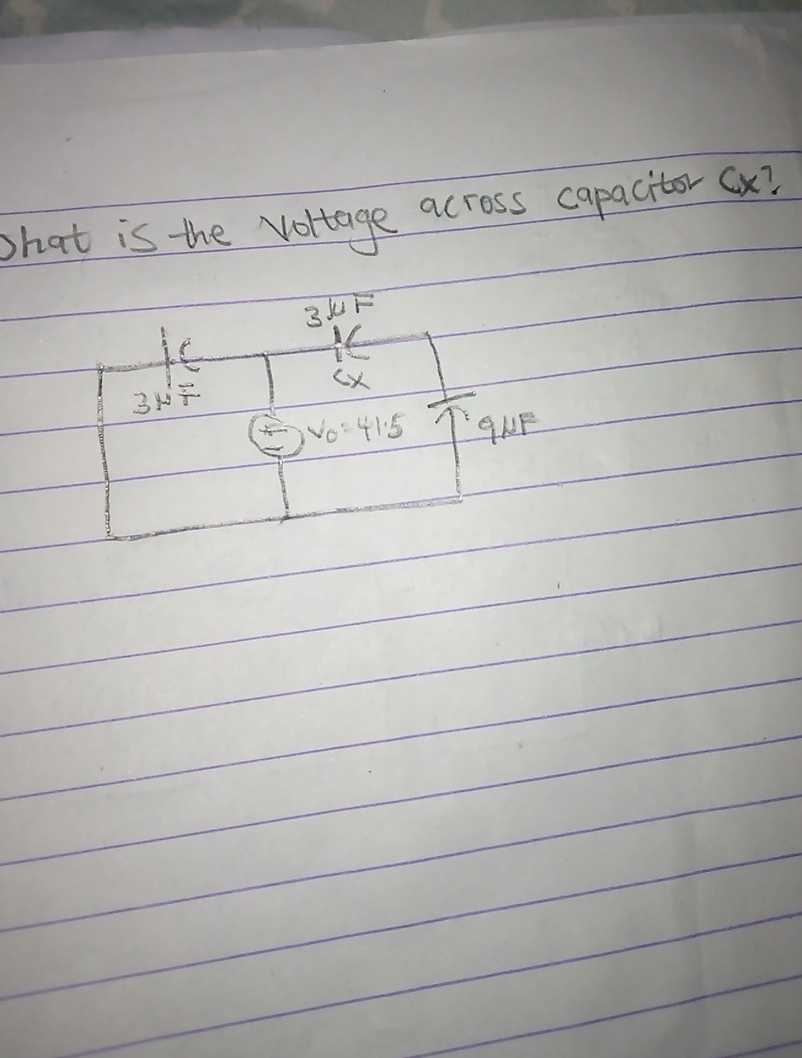 What is the Voltage across capacitor Cx?
3μF
Cx
3μF
V0=41.5
9μF